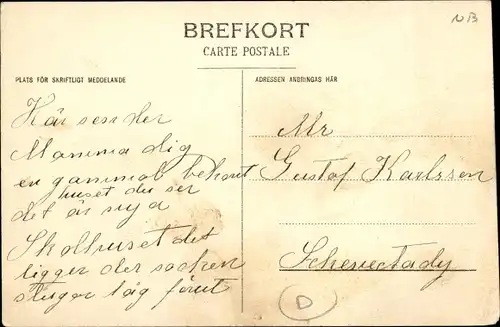 NB
BREFKORT
CARTE POSTALE
PLATS FÖR SKRIFTLIGT MEDDELANDE
ADRESSEN ANBRINGAS HÄR
Här sender
Mamma dig
en gammal bekant
huset du ser
det är nya
Skolhuset det
ligger der socken
stugor låg förut
Mr
Gustof Karlssen
Schenectady
D